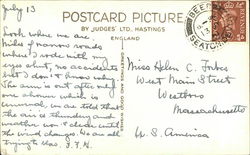 July 13
POSTCARD PICTURE
BY JUDGES' LTD., HASTINGS
ENGLAND
BEER
SEATON
13
Look where we are.
Miles of narrow roads
where I rode with my
eyes shut, no accidents
but I don't know why.
The sun is out after
one shower which is
unusual, we are told that
the air is thundery and
weather won't clear until
the wind changes. We are all
trying to
Miss Helen C. Forbes
West Main Street
Westboro
Massachusetts
U.S. America